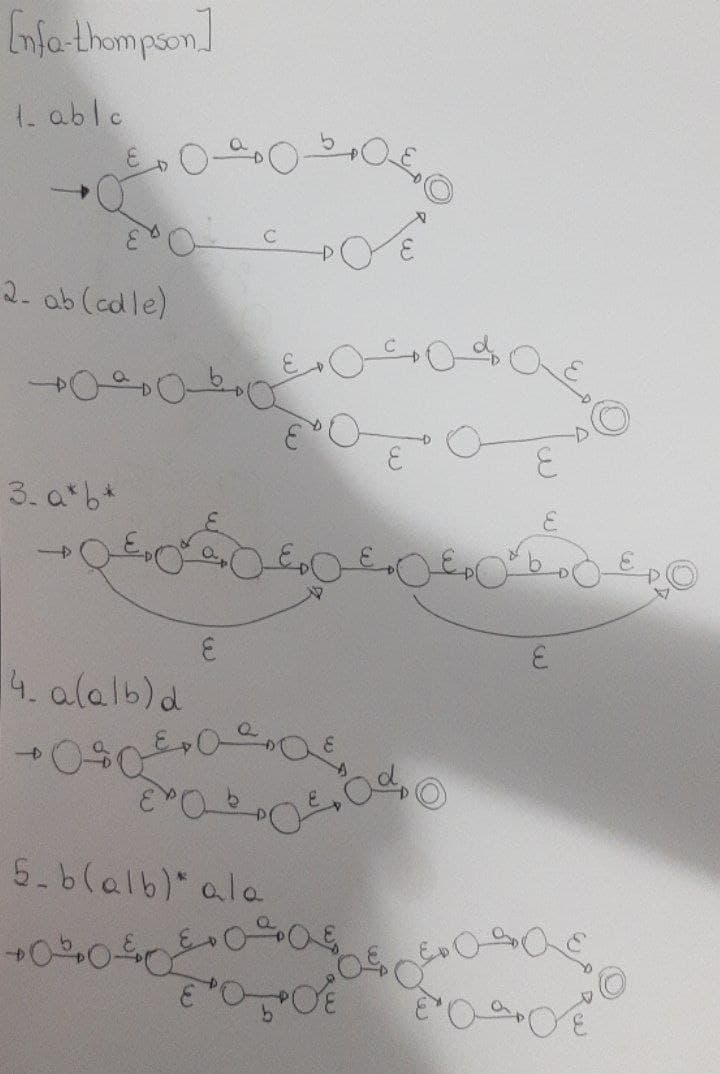 [nfa-thompson]
1- ab|c
ε a b ε
ε c ε
2- ab(cd|e)
a b ε c d ε
ε ε ε
3- a*b*
ε ε
ε a ε ε ε b ε
ε ε
4. a(a|b)d
a ε a ε
ε b ε d
5- b(a|b)* a|a
b ε ε a ε ε ε a ε
ε b ε ε a ε